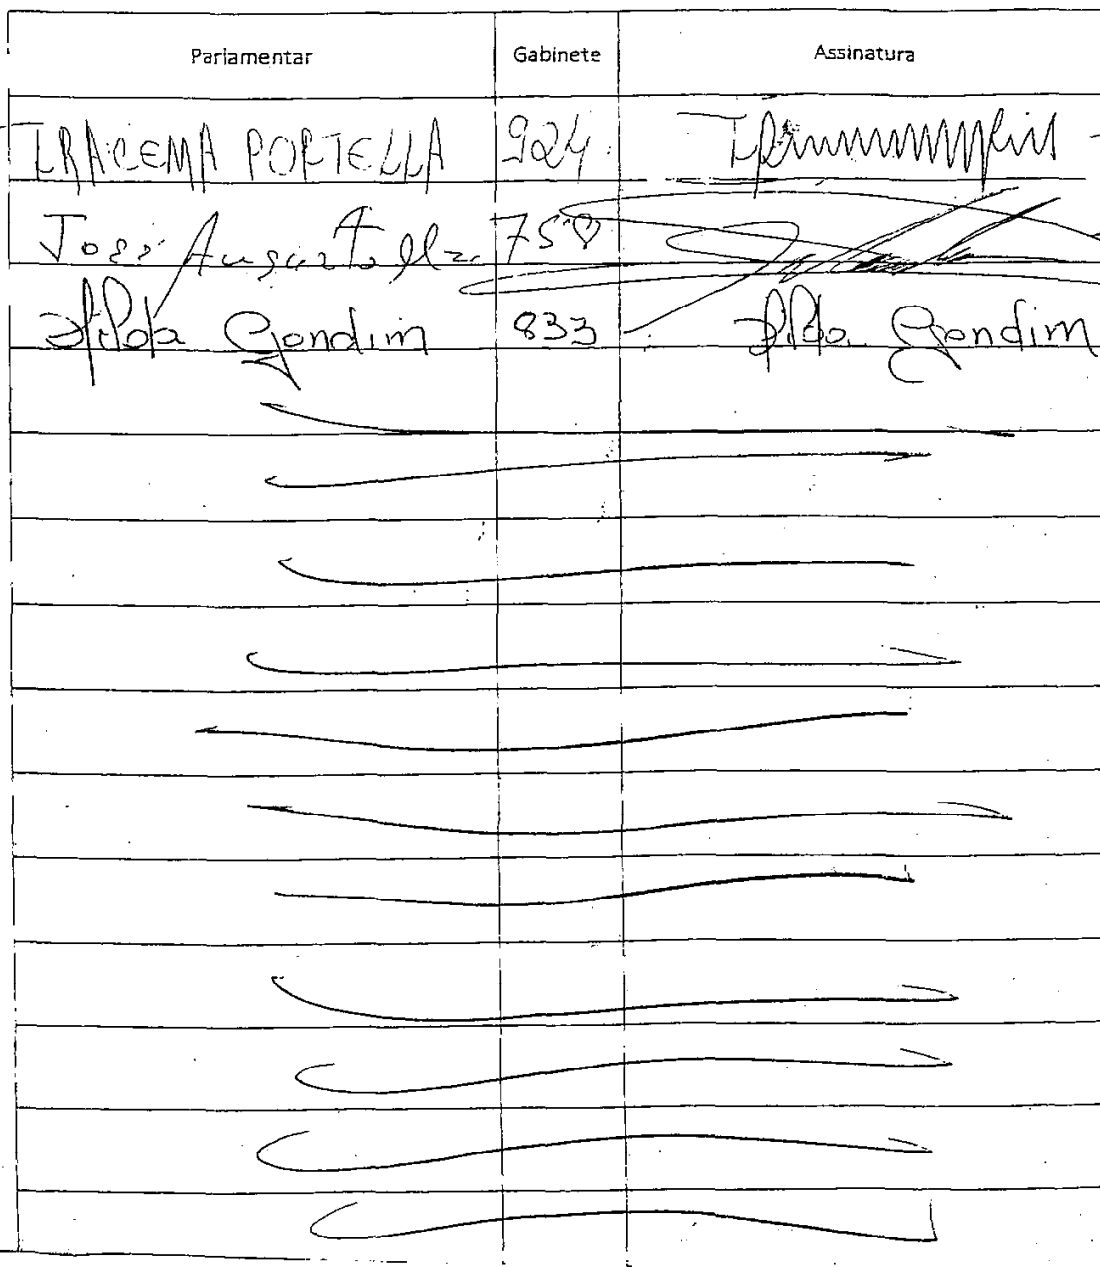 Parlamentar Gabinete Assinatura
IRACEMA PORTELLA 924
José Augusto 758
Nilda Gondim 833 Nilda Gondim